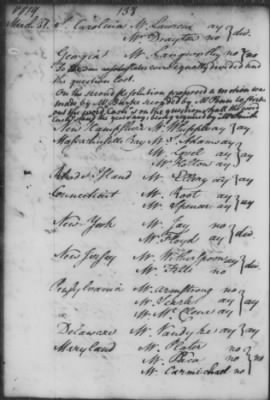 1779 138
March 31. S. Carolina Mr. Laurens ay } div.
Mr. Drayton no
Georgia Mr. Langworthy no } no
the question lost.
On the second resolution proposed a motion was
made by Mr. Burke seconded by Mr. Penn to strike
out the word
New Hampshire Mr. Whipple ay } ay
Massachusetts Bay Mr. S. Adams ay } ay
Mr. Lovel ay
Mr. Holten ay
Rhode Island Mr. Ellery ay } ay
Connecticut Mr. Root ay } ay
Mr. Spencer ay
New York Mr. Jay no } div
Mr. Floyd ay
New Jersey Mr. Witherspoon ay } div
Mr. Fell no
Pensylvania Mr. Armstrong no } ay
Mr. Searle ay
Mr. McClene ay
Delaware Mr. Vandyke ay } ay
Maryland Mr. Plater no } no
Mr. Paca no
Mr. Carmichael no